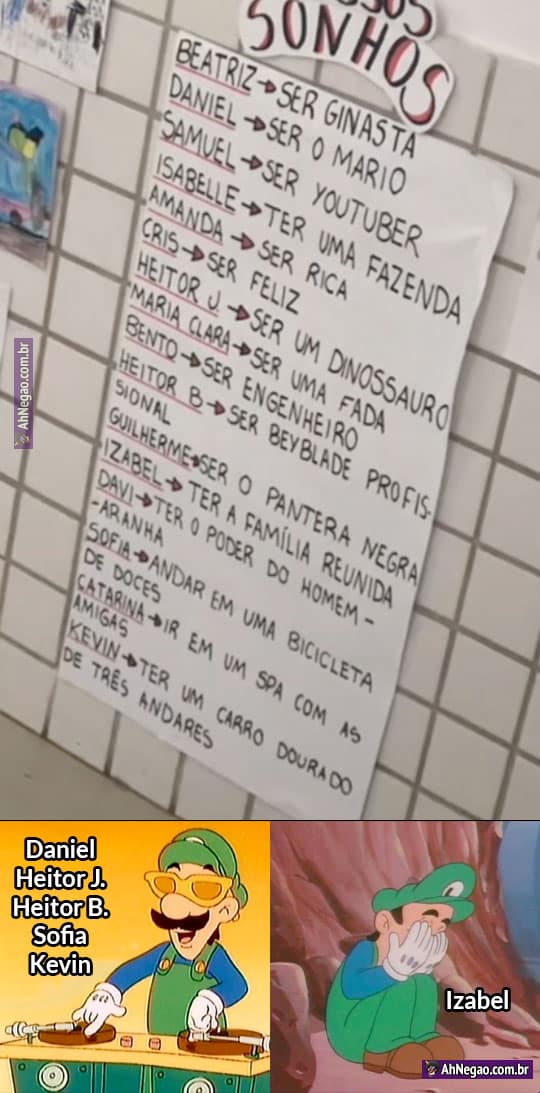 SONHOS
BEATRIZ→SER GINASTA
DANIEL→SER O MARIO
SAMUEL→SER YOUTUBER
ISABELLE→TER UMA FAZENDA
AMANDA→SER RICA
CRIS→SER FELIZ
HEITOR J→SER UM DINOSSAURO
MARIA CLARA→SER UMA FADA
BENTO→SER ENGENHEIRO
HEITOR B→SER BEYBLADE PROFIS-
SIONAL
GUILHERME→SER O PANTERA NEGRA
IZABEL→TER A FAMÍLIA REUNIDA
DAVI→TER O PODER DO HOMEM-
-ARANHA
SOFIA→ANDAR EM UMA BICICLETA
DE DOCES
CATARINA→IR EM UM SPA COM AS
AMIGAS
KEVIN→TER UM CARRO DOURADO
DE TRÊS ANDARES
AhNegao.com.br
Daniel
Heitor J.
Heitor B.
Sofia
Kevin
L
Izabel
AhNegao.com.br